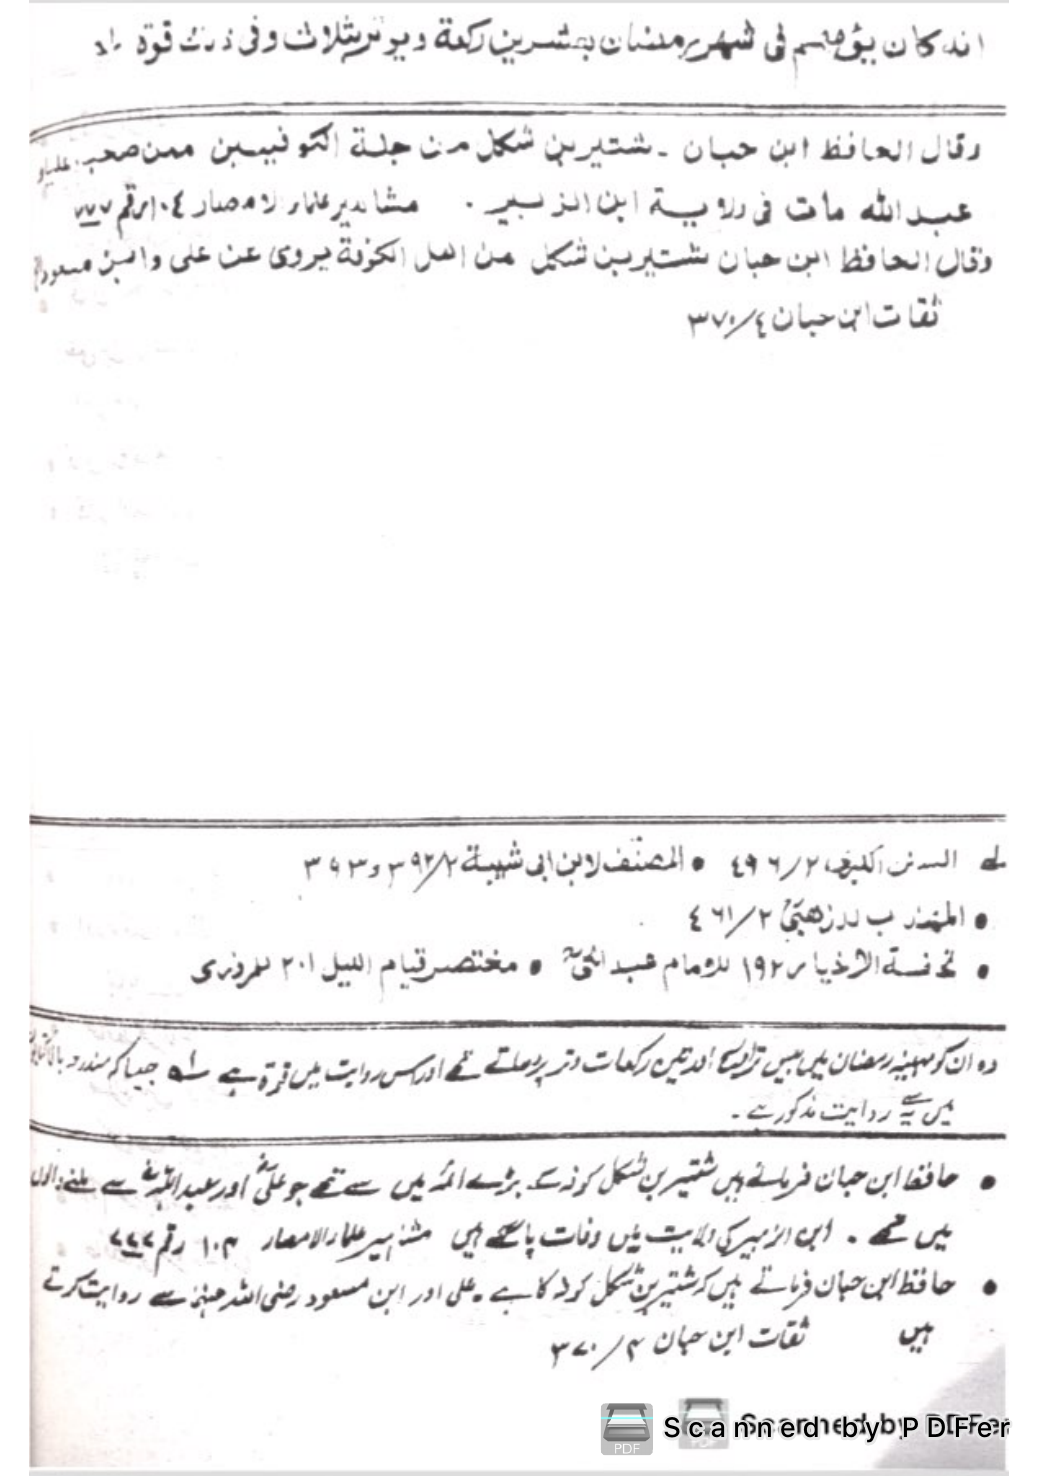 انه كان يؤمهم فى شهر رمضان بعشرين ركعة ويوتر بثلاث وفى ذلك قوة
وقال الحافظ ابن حبان ـ شتيربن شكل من جلة الكوفيين ممن صحب عليا و
عبد الله مات فى ولاية ابن الزبير . مشاهير علماء الامصار ١٠٤ رقم ٧٧٧
وقال الحافظ ابن حبان شتيربن شكل من اهل الكوفة يروى عن على وابن مسعود
ثقات ابن حبان ٤/٣٧٠
لے السنن الكبرى ٢/٤٩٦ • المصنف لابن ابى شيبة ٢/٣٩٢ و ٣٩٣
• المهذب للذهبى ٢/٤٦١
• تحفة الاخيار ١٩٢ للامام عبد الحى • مختصر قيام الليل ٢٠١ للمروزى
وہ ان کو مہینہ رمضان میں بیس تراویح اور تین رکعات وتر پڑھاتے تھے اور اس روایت میں قوۃ ہے لے جیسا کہ مندرجہ بالا
میں یہ روایت مذکور ہے ۔
• حافظ ابن حبان فرماتے ہیں شتیر بن شکل کوفہ کے بڑے ائمہ میں سے تھے جو علی اور عبداللہ سے ملنے والوں
میں تھے ۔ ابن الزبیر کی ولایت میں وفات پا گئے ہیں مشاہیر علماء الامصار ۱۰۴ رقم ۷۷۷
• حافظ ابن حبان فرماتے ہیں کہ شتیر بن شکل کوفہ کا ہے ۔ علی اور ابن مسعود رضی اللہ عنہما سے روایت کرتے
ہیں ثقات ابن حبان ۴/۳۷۰
Scanned by PDFer
PDF